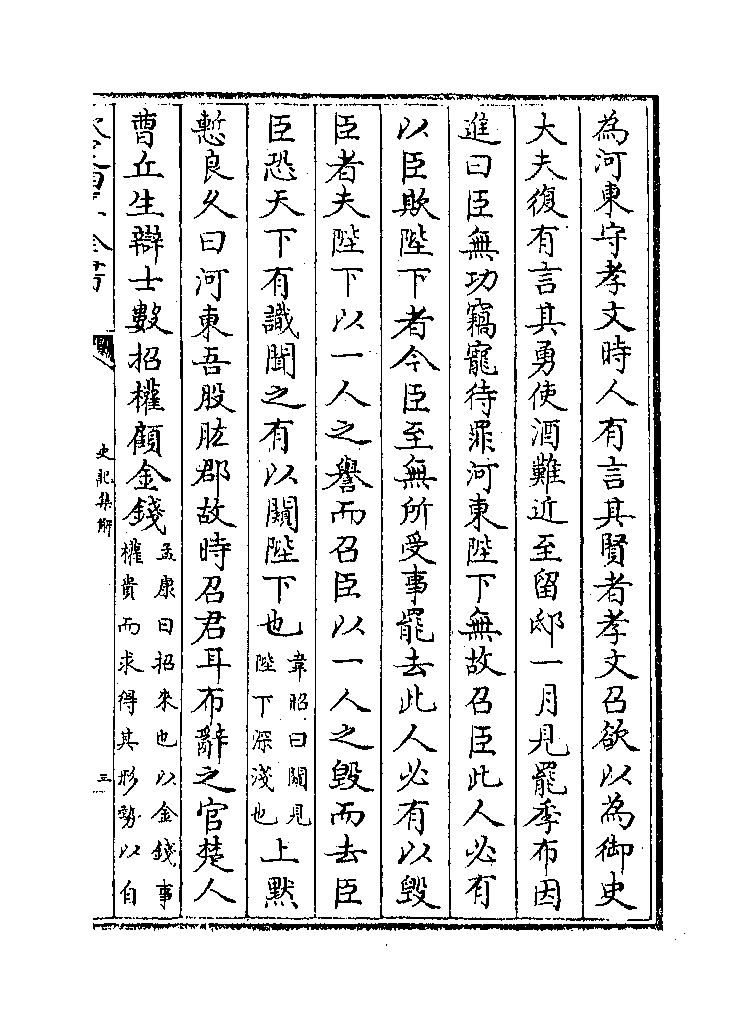 為河東守孝文時人有言其賢者孝文召欲以為御史
大夫復有言其勇使酒難近至留邸一月見罷季布因
進曰臣無功竊寵待罪河東陛下無故召臣此人必有
以臣欺陛下者今臣至無所受事罷去此人必有以毀
臣者夫陛下以一人之譽而召臣以一人之毀而去臣
臣恐天下有識聞之有以闚陛下也韋昭曰闚見陛下深淺也上默
慙良久曰河東吾股肱郡故時召君耳布辭之官楚人
曹丘生辯士數招權顧金錢孟康曰招來也以金錢事權貴而求得其形勢以自
史記集解
三